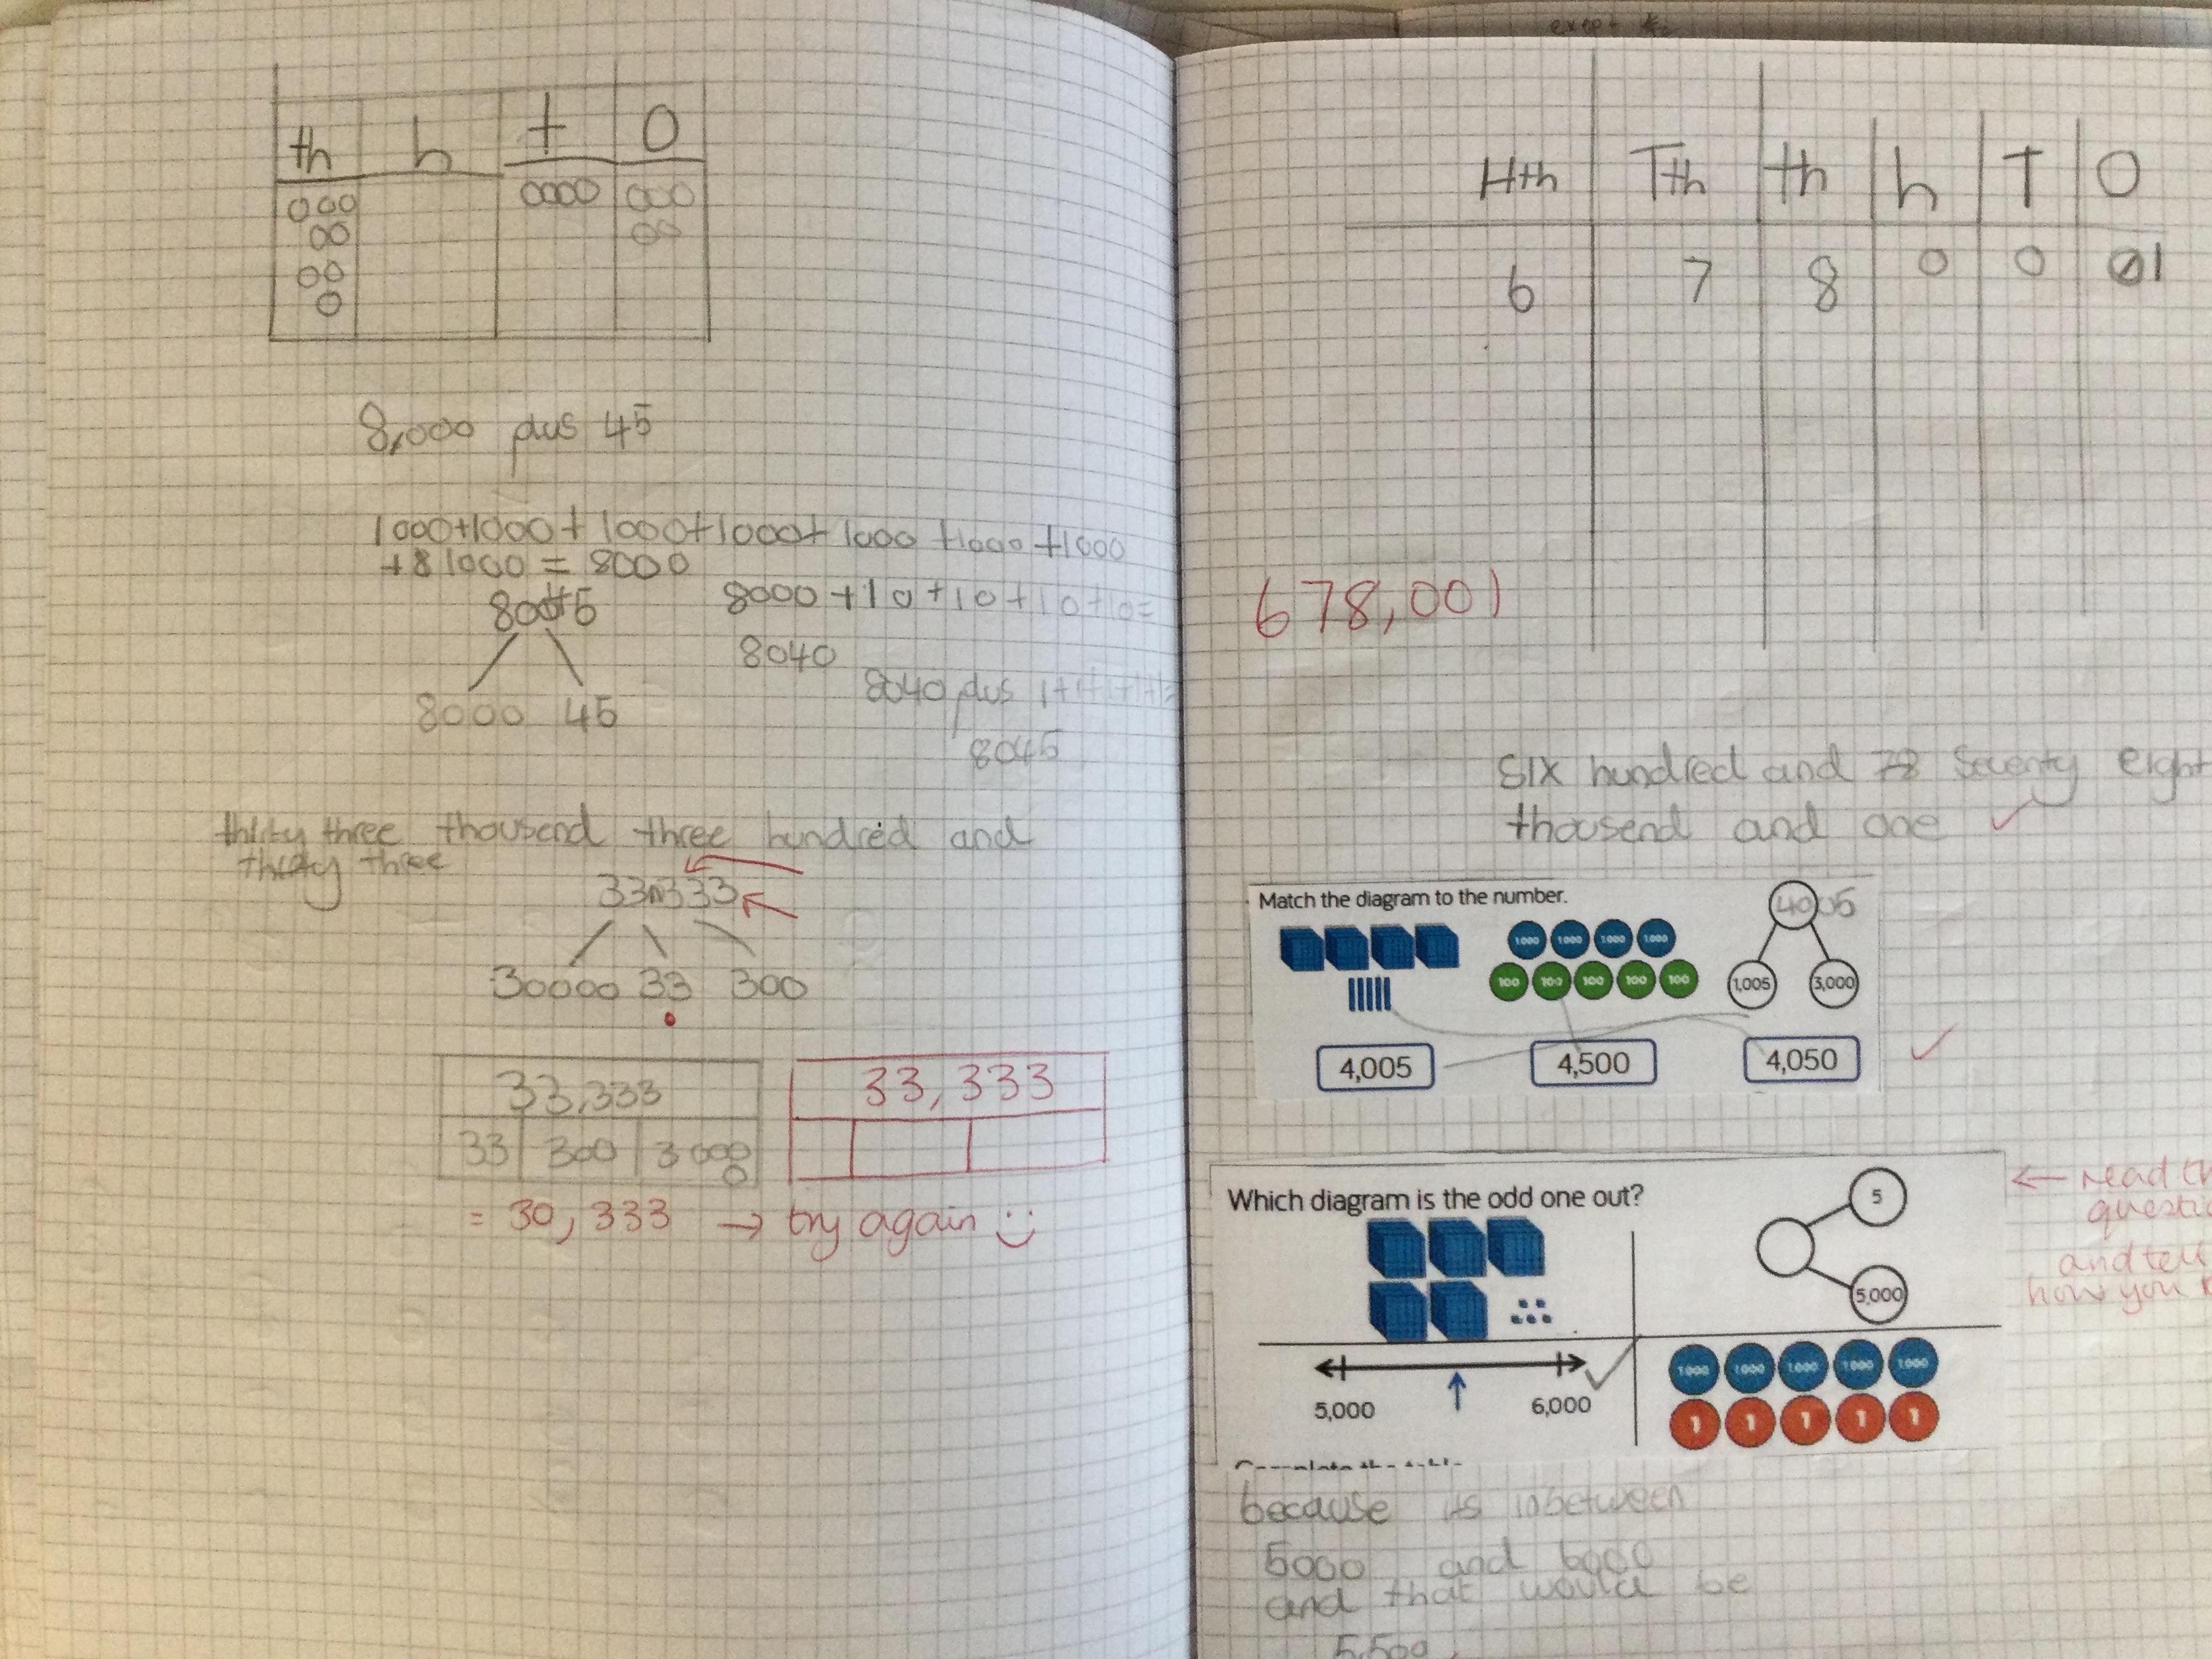 th h t O
8,000 plus 45
1000+1000+1000+1000+1000+1000+1000
+81000 = 8000
8045
8000 45
8000+10+10+10+10=
8040
8040 plus 1+1+1+1+1=
8045
thirty three thousend three hundred and
thirty three
33,333
30000 33 300
33,333
33 300 30000
33,333
= 30,333 → try again
Hth Tth th h T O
6 7 8 0 0 1
678,001
six hundred and 78 seventy eight
thousend and one
Match the diagram to the number.
4005
1,000 1,000 1,000 1,000
100 100 100 100 100
1,005 3,000
4,005 4,500 4,050
Which diagram is the odd one out?
5
5,000
5,000 6,000
1,000 1,000 1,000 1,000 1,000
1 1 1 1 1
← read
and tell
how you
Complete the table
because its inbetween
5000 and 6000
and that would be
5,500